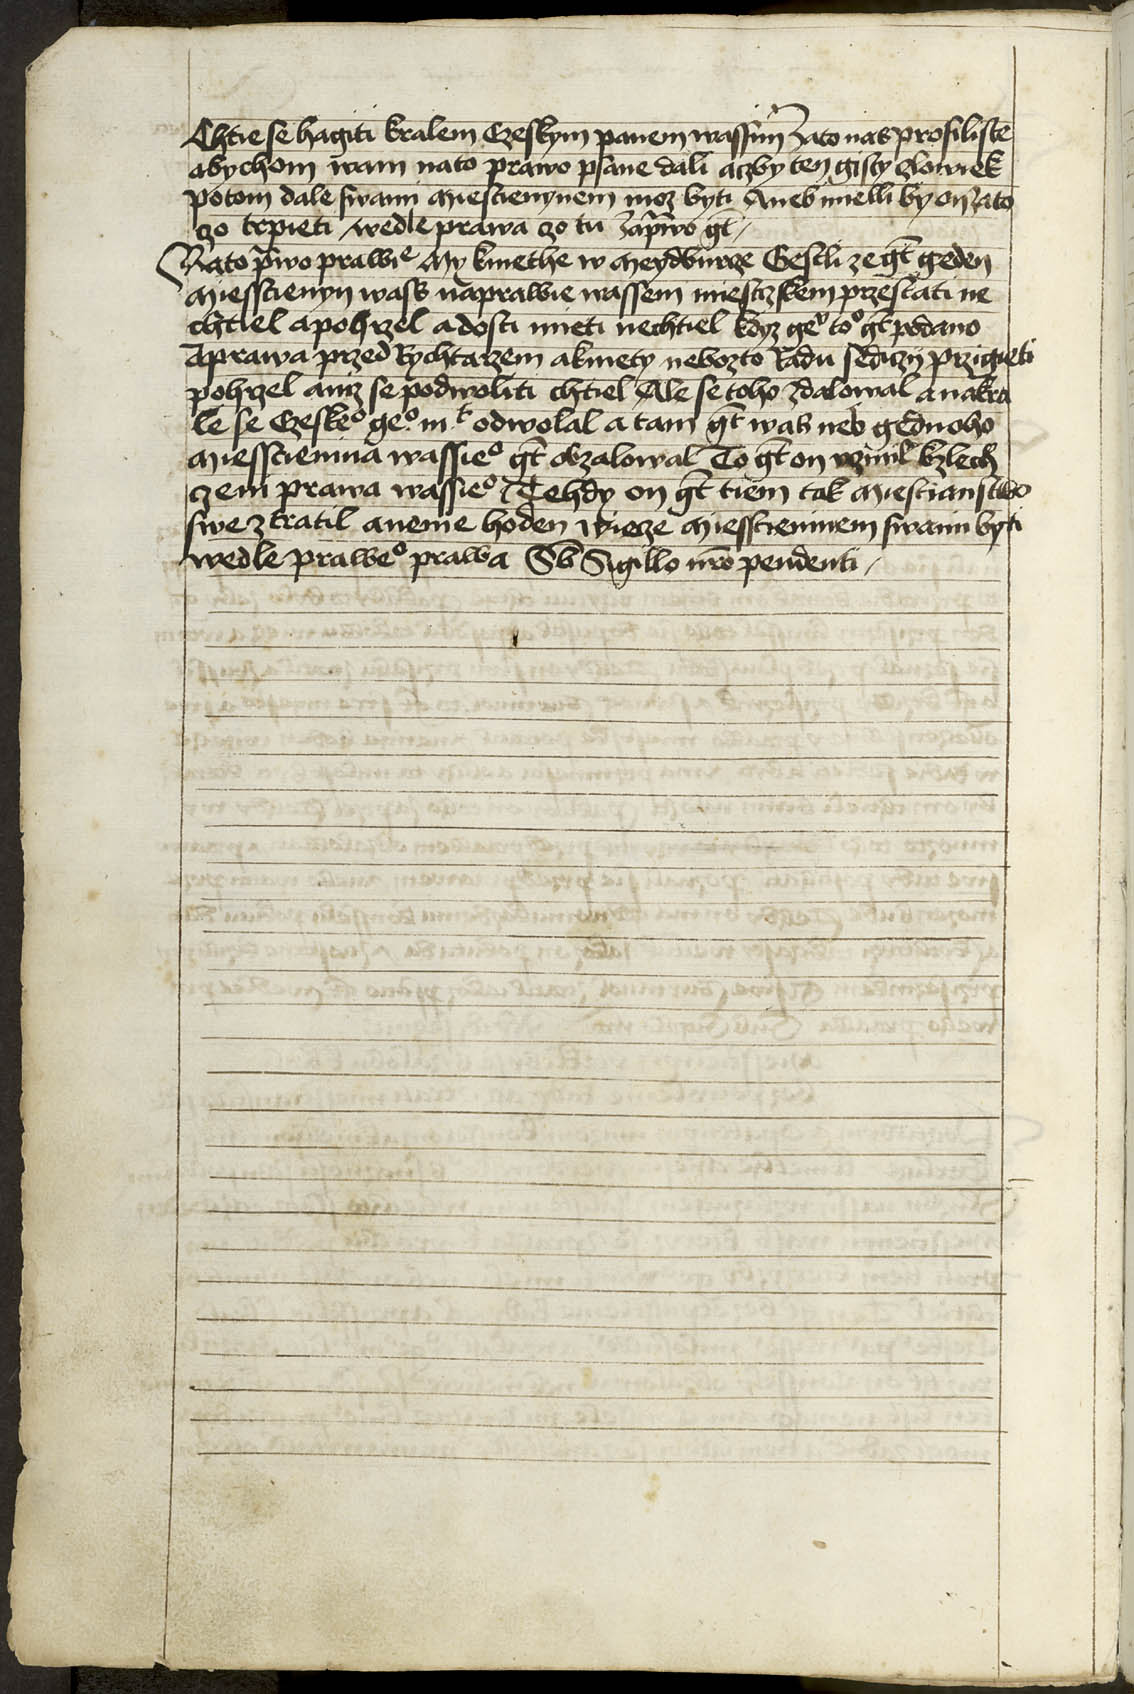 Chtie se hagiti kralem Czeskym panem wassim Zato nas prosiliste
abychom wam nato prawo psane dali aczby ten gisty czlowiek
potom dale s wami miesstieninem moz byti Aneb mielli by on zato
czo trpieti wedle prawa czo tu za pwo gt /
Nato pwo prawie My kmethe w Meydburcze Gestli ze gt geden
miesstienyn wass na prawie wassem miestczskem przestati ne
chtiel a pohrzel a dosti mieti nechtiel kdyz geº toº gt podano
A prawa przed Rychtarzem a kmety nebozto Radu sediczy przigieti
pohrzel aniz se podwoliti chtiel Ale se toho zdalowal a na kra
le se Czeskeº geº mt odwolal a tam gt was neb gednoho
miesstienina wassieº gt obzalowal To gt on vczinil k zlech
czeni prawa wassieº Tehdy on gt tiem tak miesstianstwo
swe ztratil a nenie hoden wiecze miesstieninem s wami byti
wedle praweº prawa Sb Sigillo nro pendenti /